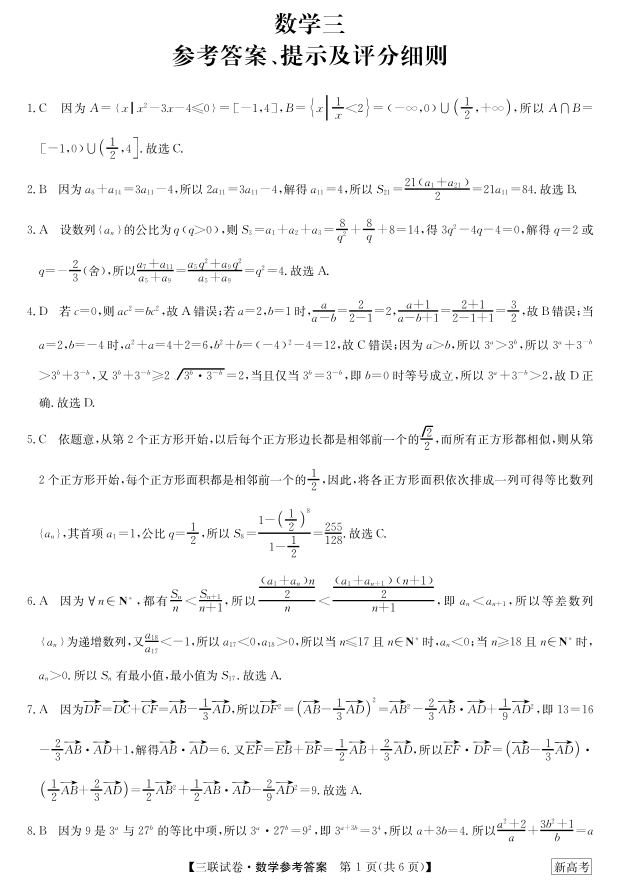 数学三
参考答案、提示及评分细则
1. C　因为 A={x|x²-3x-4≤0}=[-1,4],B={x|1/x<2}=(-∞,0)∪(1/2,+∞),所以 A∩B=
[-1,0)∪(1/2,4].故选 C.
2. B　因为 a₈+a₁₄=3a₁₁-4,所以 2a₁₁=3a₁₁-4,解得 a₁₁=4,所以 S₂₁=21(a₁+a₂₁)/2=21a₁₁=84.故选 B.
3. A　设数列{aₙ}的公比为 q(q>0),则 S₃=a₁+a₂+a₃=8/q²+8/q+8=14,得 3q²-4q-4=0,解得 q=2 或
q=-2/3(舍),所以(a₇+a₁₁)/(a₅+a₉)=(a₅q²+a₉q²)/(a₅+a₉)=q²=4.故选 A.
4. D　若 c=0,则 ac²=bc²,故 A 错误;若 a=2,b=1 时,a/(a-b)=2/(2-1)=2,(a+1)/(a-b+1)=(2+1)/(2-1+1)=3/2,故 B 错误;当
a=2,b=-4 时,a²+a=4+2=6,b²+b=(-4)²-4=12,故 C 错误;因为 a>b,所以 3ᵃ>3ᵇ,所以 3ᵃ+3⁻ᵇ
>3ᵇ+3⁻ᵇ,又 3ᵇ+3⁻ᵇ≥2√(3ᵇ·3⁻ᵇ)=2,当且仅当 3ᵇ=3⁻ᵇ,即 b=0 时等号成立,所以 3ᵃ+3⁻ᵇ>2,故 D 正
确.故选 D.
5. C　依题意,从第 2 个正方形开始,以后每个正方形边长都是相邻前一个的√2/2,而所有正方形都相似,则从第
2 个正方形开始,每个正方形面积都是相邻前一个的1/2,因此,将各正方形面积依次排成一列可得等比数列
{aₙ},其首项 a₁=1,公比 q=1/2,所以 S₈=(1-(1/2)⁸)/(1-1/2)=255/128.故选 C.
6. A　因为 ∀n∈N*,都有Sₙ/n<Sₙ₊₁/(n+1),所以((a₁+aₙ)n/2)/n<((a₁+aₙ₊₁)(n+1)/2)/(n+1),即 aₙ<aₙ₊₁,所以等差数列
{aₙ}为递增数列,又a₁₈/a₁₇<-1,所以 a₁₇<0,a₁₈>0,所以当 n≤17 且 n∈N*时,aₙ<0;当 n≥18 且 n∈N*时,
aₙ>0.所以 Sₙ 有最小值,最小值为 S₁₇.故选 A.
7. A　因为DF→=DC→+CF→=AB→-1/3AD→,所以DF→²=(AB→-1/3AD→)²=AB→²-2/3AB→·AD→+1/9AD→²,即 13=16
-2/3AB→·AD→+1,解得AB→·AD→=6.又EF→=EB→+BF→=1/2AB→+2/3AD→,所以EF→·DF→=(AB→-1/3AD→)·
(1/2AB→+2/3AD→)=1/2AB→²+1/2AB→·AD→-2/9AD→²=9.故选 A.
8. B　因为 9 是 3ᵃ 与 27ᵇ 的等比中项,所以 3ᵃ·27ᵇ=9²,即 3ᵃ⁺³ᵇ=3⁴,所以 a+3b=4.所以(a²+2)/a+(3b²+1)/b=a
【三联试卷·数学参考答案　第 1 页(共 6 页)】　新高考